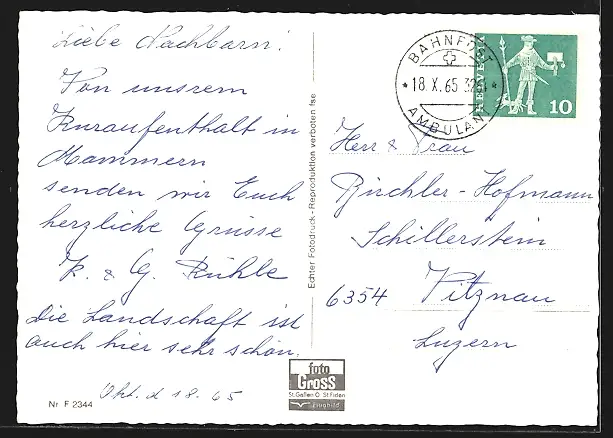 Liebe Nachbarn!
Von unsrem
Kuraufenthalt in
Mammern
senden wir Euch
herzliche Grüsse
K. & G. Rühle
Die Landschaft ist
auch hier sehr schön.
Okt. d 18. 65
Nr F 2344
Echter Fotodruck - Reproduktion verboten fse
foto
Gross
St. Gallen O St Fiden
Flugbild
BAHNPOST
18.X.65
AMBULANT
HELVETIA
10
Herr & Frau
Birchler - Hofmann
Schillerstein
6354 Vitznau
Luzern